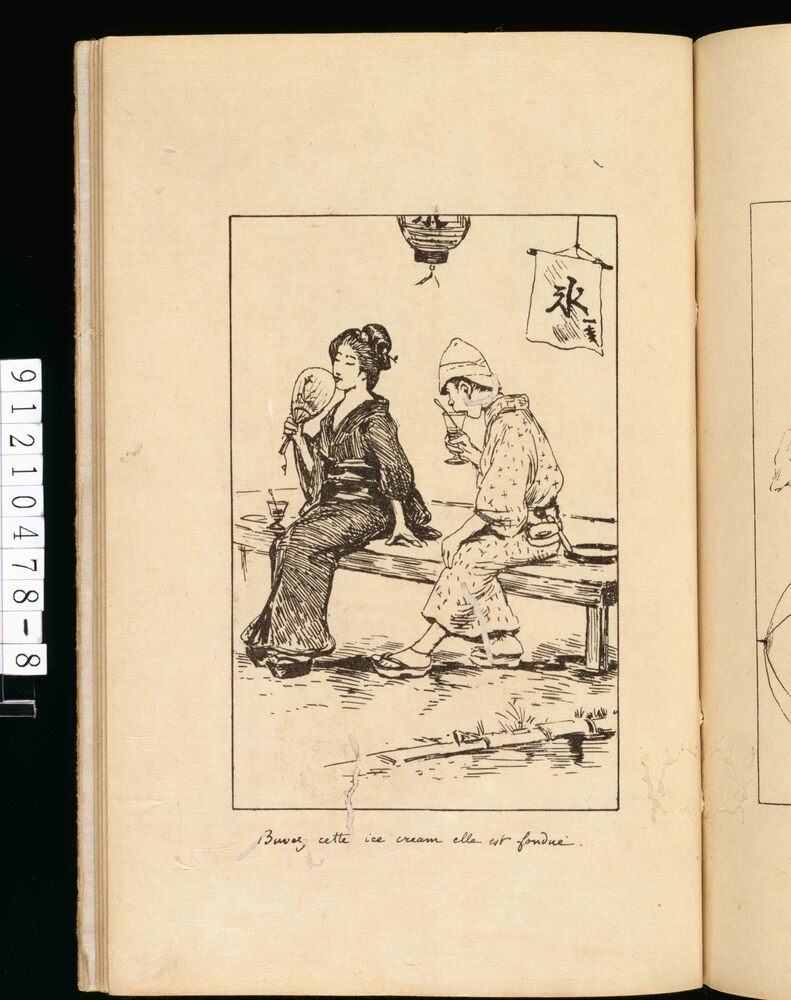 氷
氷
Buvez cette ice cream elle est fondue.
91210478-8